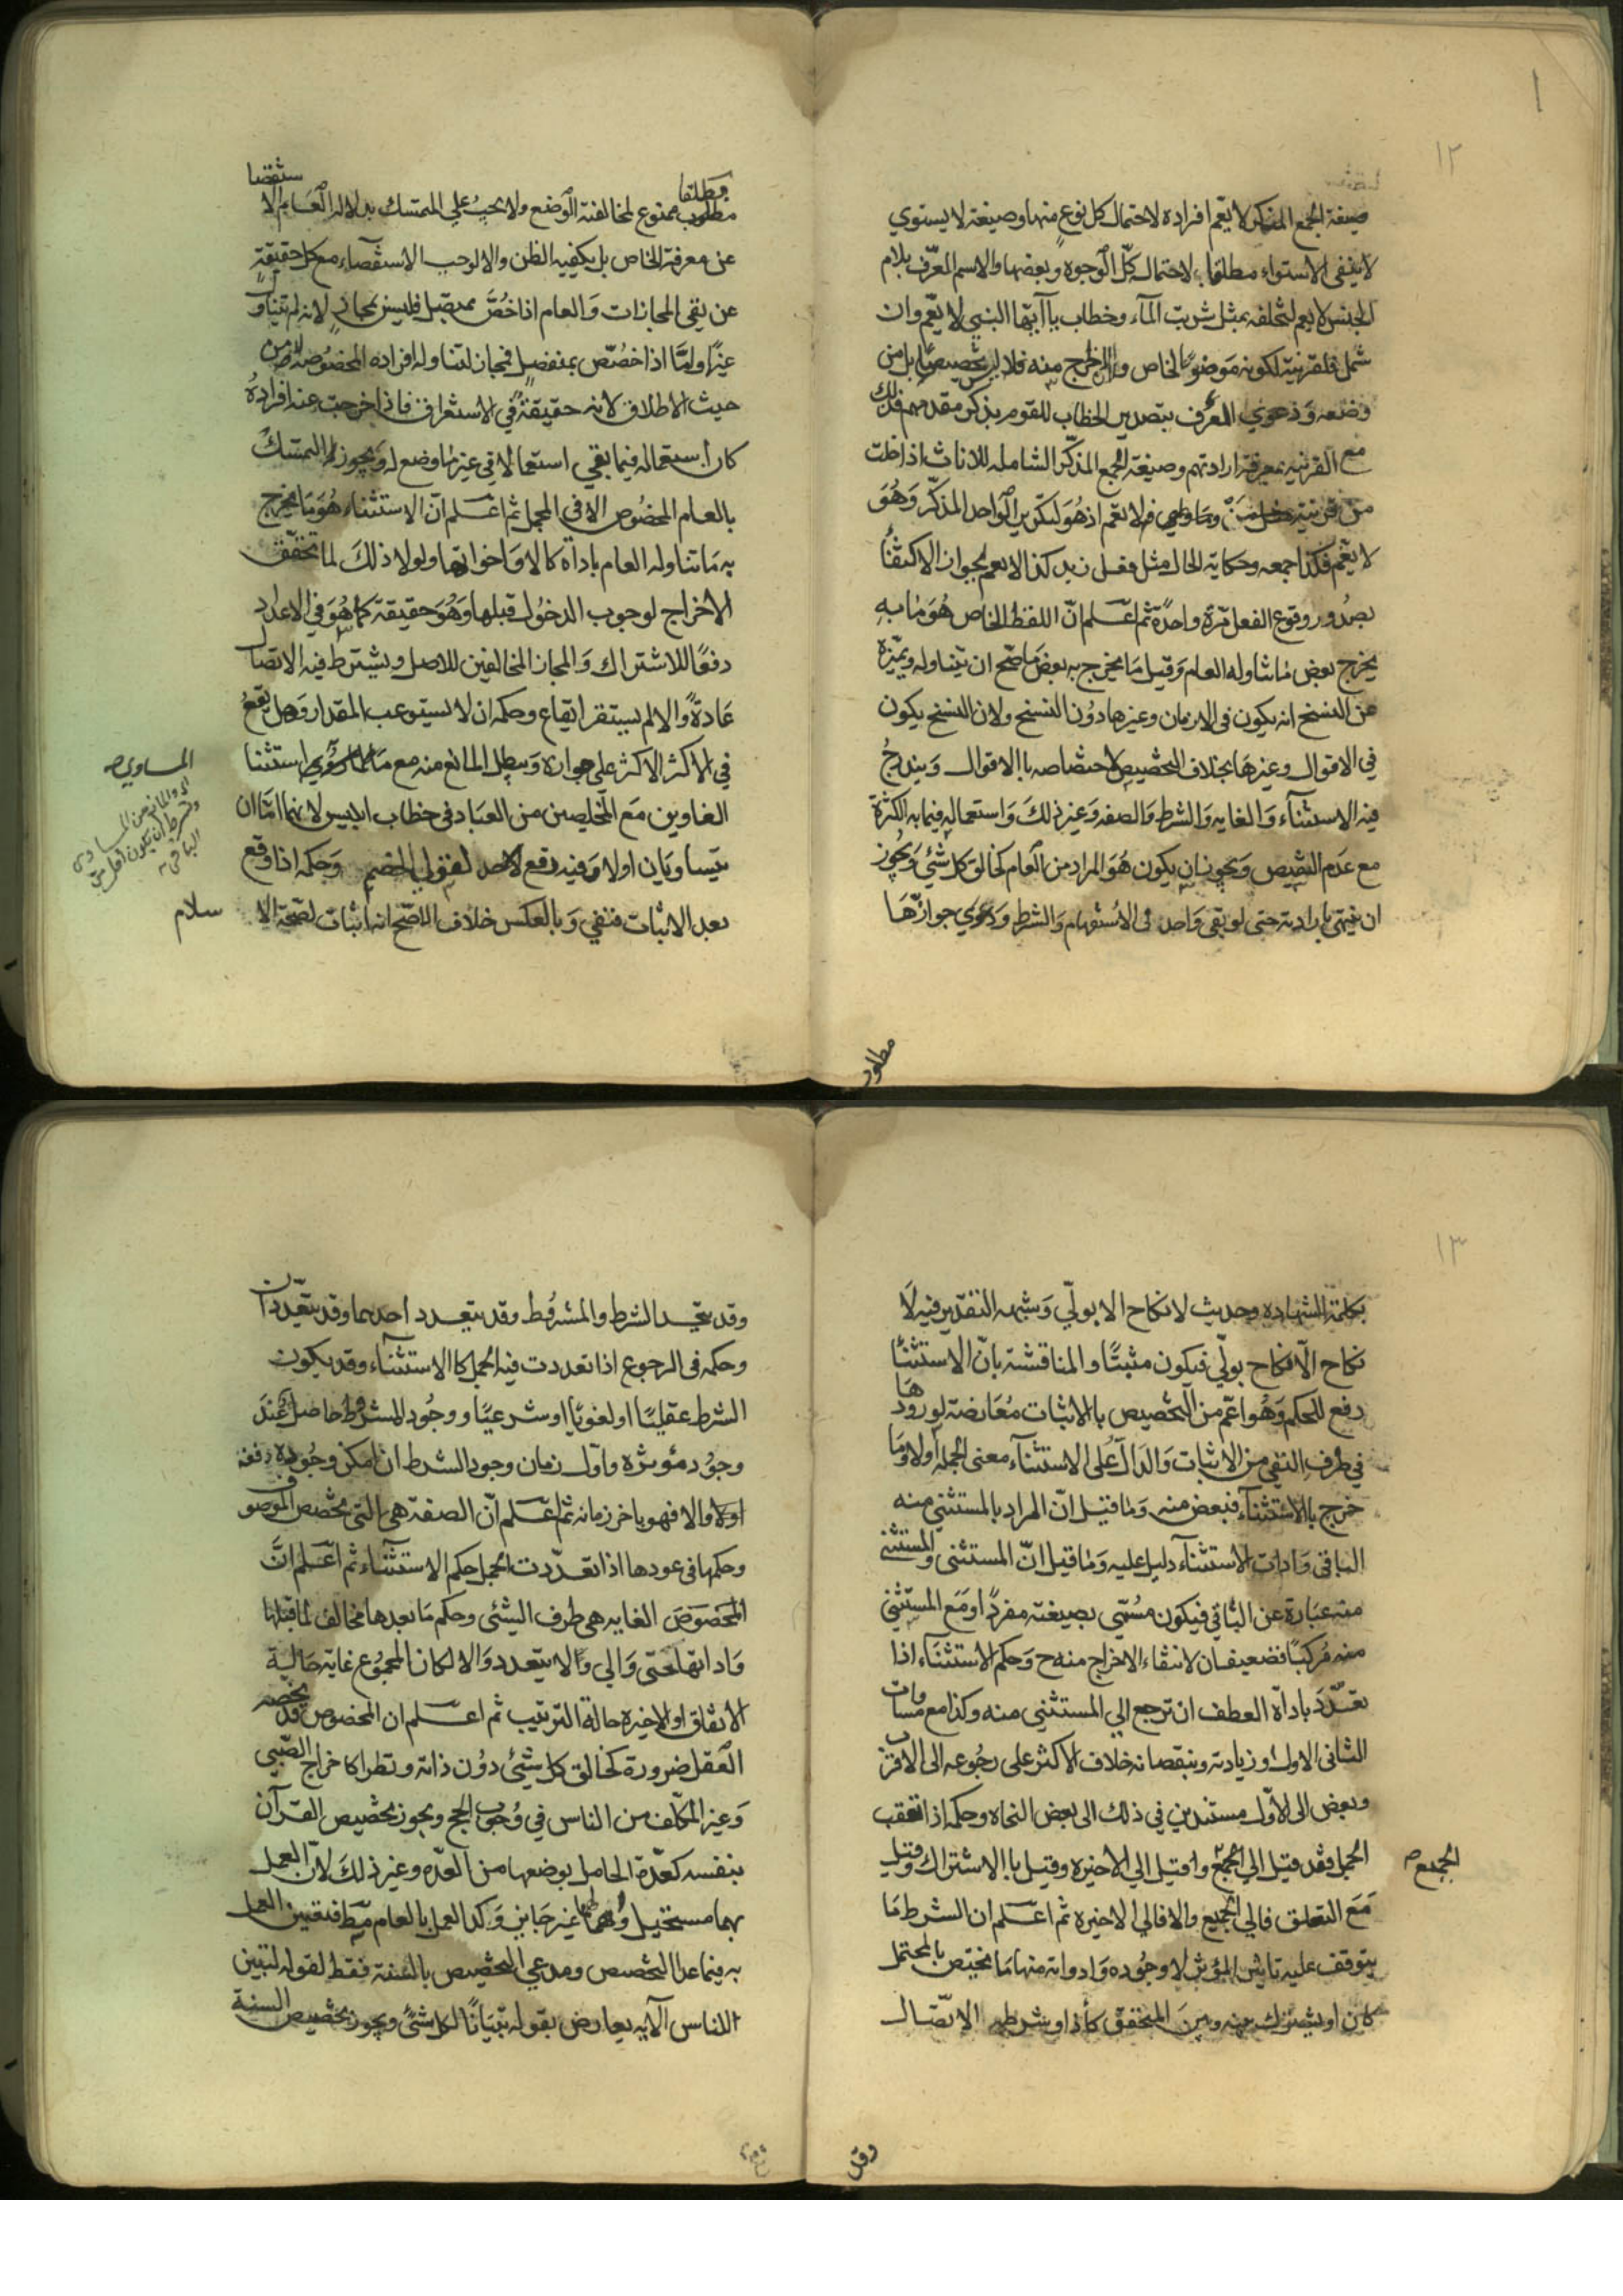 ١٢
صيغة الجمع المنكر لا يعم افراده لاحتمال كل نوع منها وصيغة لا يستوي
لا ينفى الاستواء مطلقا لاحتمال كل الوجوه وبعضها والاسم المعرف بلام
الجنس لا يعم لتخلفه بمثل شربت الماء وخطاب يا ايها النبي لا يعم وان
شمل فلقرينة لكونه موضوعا لخاص والمخرج منه فلا تخصيص بل من
وضعه ودعوي المعرف بتصدير الخطاب للقوم بذكر مقدمهم فذلك
مع القرينة بمعرفة ارادتهم وصيغة الجمع المذكر الشاملة للاناث اذا خلت
من قرينة فلا تعم اذ هو لتكرير الواحد المذكر وهو
لا يعم فكذا جمعه وحكاية الحال مثل فعل زيد كذا لا يعم لجواز الاكتفاء
بصدور وقوع الفعل مرة واحدة ثم اعلم ان اللفظ الخاص هو ما به
يخرج بعض ما تناوله العام وقيل ما يخرج به بعض ما صح ان يتناوله ويميزه
عن النسخ انه يكون في الازمان وغيرها دون النسخ ولان النسخ يكون
في الاقوال وغيرها بخلاف التخصيص لاختصاصه باالاقوال ويندرج
فيه الاستثناء والغايه والشرط والصفه وغير ذلك واستعماله فيما به الكثرة
مع عدم التخصيص ويجوز ان يكون هو المراد من العام كخالق كل شئ ويجوز
ان ينتهى بارادته حتى لو بقى واحد فى الاستفهام والشرط ودعوي جوازها
مطلوب
مطلقا
ستقصا
مطلوب ممنوع لمخالفته الوضع ولا يجب علي المتمسك بدلالة العام الا
عن معرفة الخاص بل يكفيه الظن والا لوجب الاستقصاء مع كل حقيقة
عن بقى المجازات والعام اذا خص بمتصل فليس بمجاز لانه لم يتناول
غيرا واما اذا خصص بمنفصل فمجاز لتناوله افراده المخصوصه لا من
حيث الاطلاق لانه حقيقة في الاستغراق فاذا خرجت عنه افراده
كان استعماله فيما بقي استعمالا في غير ما وضع له ويجوز لنا التمسك
بالعام المخصوص الا في المجمل ثم اعلم ان الاستثناء هو ما يخرج
به ما تناوله العام باداة كالا واخواتها ولولا ذلك لما تحقق
الاخراج لوجوب الدخول قبلها وهو حقيقة كما هو في الاعداد
دفعا للاشتراك والمجاز المخالفين للاصل ويشترط فيه الاتصال
عادة والا لم يستقر ايقاع وحكمه ان لا يستوعب المقدار وهل يقع
في الاكثر الاكثر علي جوازه ويبطل المانع منه مع استثنا
الغاوين مع المخلصين من العباد في خطاب ابليس لانهما اما ان
يتساويان اولا وفيه دفع لاحد لقول الخصم وحكمه اذا وقع
بعد الاثبات فنفي وبالعكس خلاف الاصح انه اثبات لصحة الا
المساوي صح
سلام
١٣
بكلمة الشهاده وحديث لا نكاح الا بولّي وشبهه التقدير فيه لا
نكاح الا نكاح بولّي فيكون مثبتا والمناقشة بان الاستثنا
رفع للحكم وهو اعم من التخصيص باالاثبات معارضة لورودها
في طرف النفي من الاثبات والدال على الاستثناء معنى الجملة اولا وما
خرج باالاستثناء فبعض منه وما قيل ان المراد بالمستثني منه
الباقى وادات الاستثناء دليل عليه وما قيل ان المستثنى والمستثنى
منه عبارة عن الباقي فيكون مسمّي بصيغته مفردا ومع المستثني
منه مركبا فضعيفان لانتفاء الاخراج منه ح وحكم الاستثناء اذا
تعدد باداة العطف ان ترجع الي المستثني منه وكذا مع مساوات
الثانى الاول او زيادته وبنقصانه خلاف الاكثر على رجوعه الى الاقرب
وبعض الى الاول مستندين في ذلك الى بعض النحاه وحكمه اذا تعقب
الجمل فقد قيل الي الجمع وقيل الي الاخيره وقيل باالاشتراك وقيل
مع التعلق فالي الجميع والا فالي الاخيره ثم اعلم ان الشرط ما
يتوقف عليه تاثير المؤثر لا وجوده وادواته منها ما يختص بالمحتمل
كان او يشترك بينه وبين المتحقق كأذا وشرطه الاتصال
الجميع صح
وقد
وقد يتحد الشرط والمشروط وقد يتعدد احدهما وقد يتعددان
وحكمه في الرجوع اذا تعددت فيه الجمل كاالاستثناء وقد يكون
الشرط عقليا او لغويا او شرعيا ووجود المشروط حاصل عند
وجود مؤثره واول زمان وجود الشرط ان امكن وجوده دفعة
اولا والا فهو باخر زمانه ثم اعلم ان الصفة هي التي تخصص الموصوف
وحكمها في عودها اذا تعددت الجمل حكم الاستثناء ثم اعلم ان
المخصوص الغايه هي طرف الشئى وحكم ما بعدها مخالف لما قبلها
واداتها حتى والي والا يتعدد والا لكان المجموع غاية حالية
الاتفاق او الاخيرة حالة الترتيب ثم اعلم ان المخصوص قد يخصه
العقل ضرورة كخالق كل شئى دون ذاته ونظرا كاخراج الصبي
وغير المكلف من الناس في وجوب الحج ويجوز تخصيص القرآن
بنفسه كعدة الحامل بوضعها من العده وغير ذلك لان العمل
بهما مستحيل غير جايز وكذا العمل بالعام فقط فتعين العمل
به فيما عدا التخصيص ومدعي التخصيص بالسنة فقط لقوله لتبين
للناس الآيه يعارض بقوله تبيانا لكل شئ ويجوز تخصيص السنة